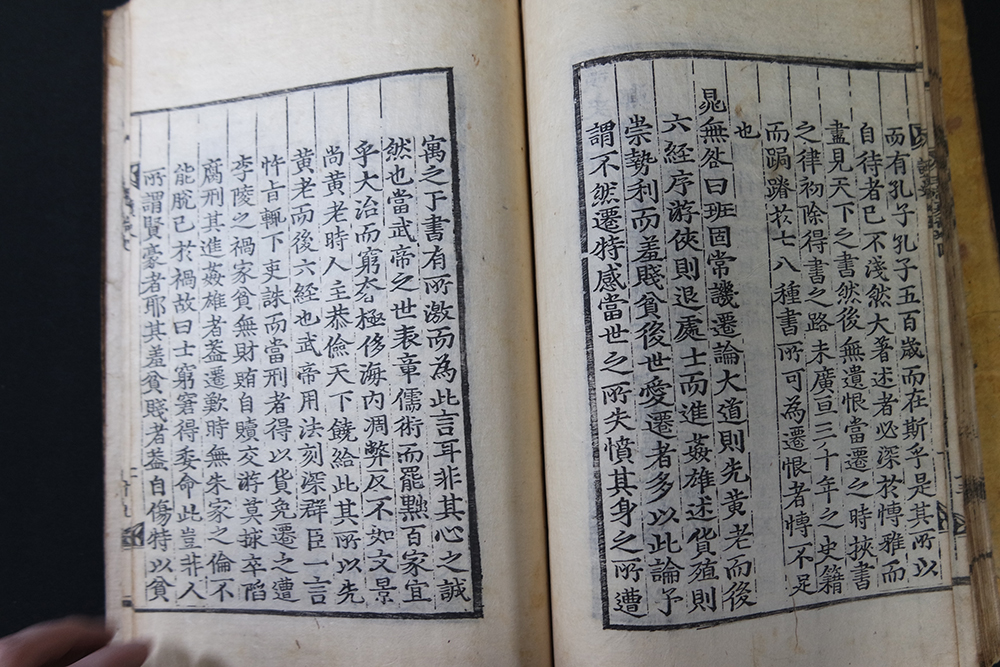 而有孔子孔子五百歲而在斯乎是其所以
自待者已不淺然大著述者必深於慱雅而
盡見天下之書然後無遺恨當遷之時挾書
之律初除得書之路未廣亘三千年之史籍
而跼蹐於七八種書所可為遷恨者慱不足
也
晁無咎曰班固常譏遷論大道則先黃老而後
六經序游俠則退處士而進姦雄述貨殖則
崇勢利而羞賤貧後世愛遷者多以此論予
謂不然遷特感當世之所失憤其身之所遭
寓之于書有所激而為此言耳非其心之誠
然也當武帝之世表章儒術而罷黜百家宜
乎大治而窮奢極侈海內凋弊反不如文景
尚黃老時人主恭儉天下饒給此其所以先
黃老而後六經也武帝用法刻深群臣一言
忤旨輒下吏誅而當刑者得以貨免遷之遭
李陵之禍家貧無財賄自贖交游莫捄卒陷
腐刑其進姦雄者蓋遷歎時無朱家之倫不
能脫己於禍故曰士窮窘得委命此豈非人
所謂賢豪者耶其羞貧賤者蓋自傷特以貧